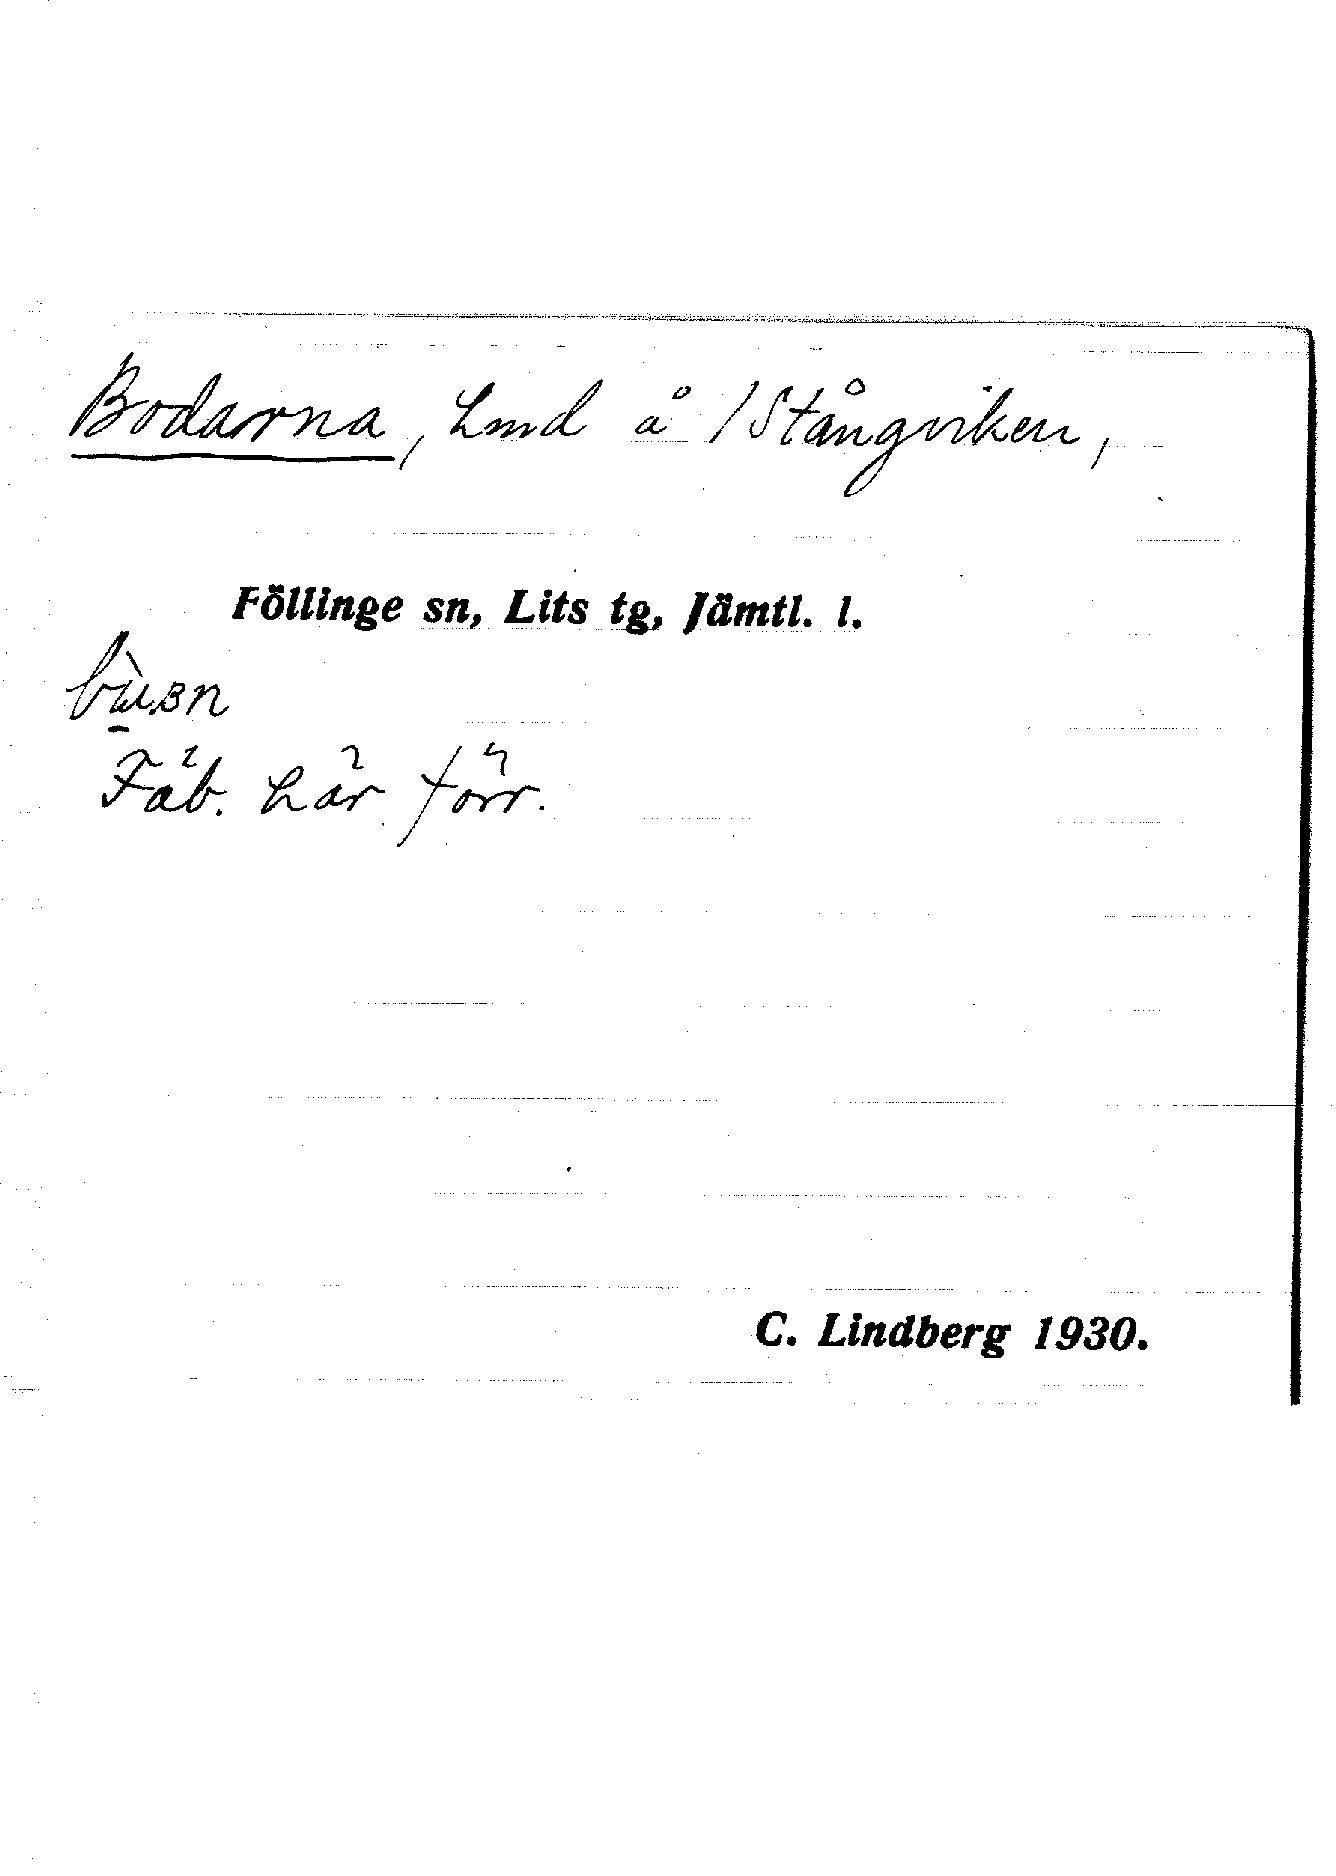 Bodarna, hmd å /Stångviken,
Föllinge sn, Lits tg, Jämtl. l.
Fäb. här förr.
C. Lindberg 1930.